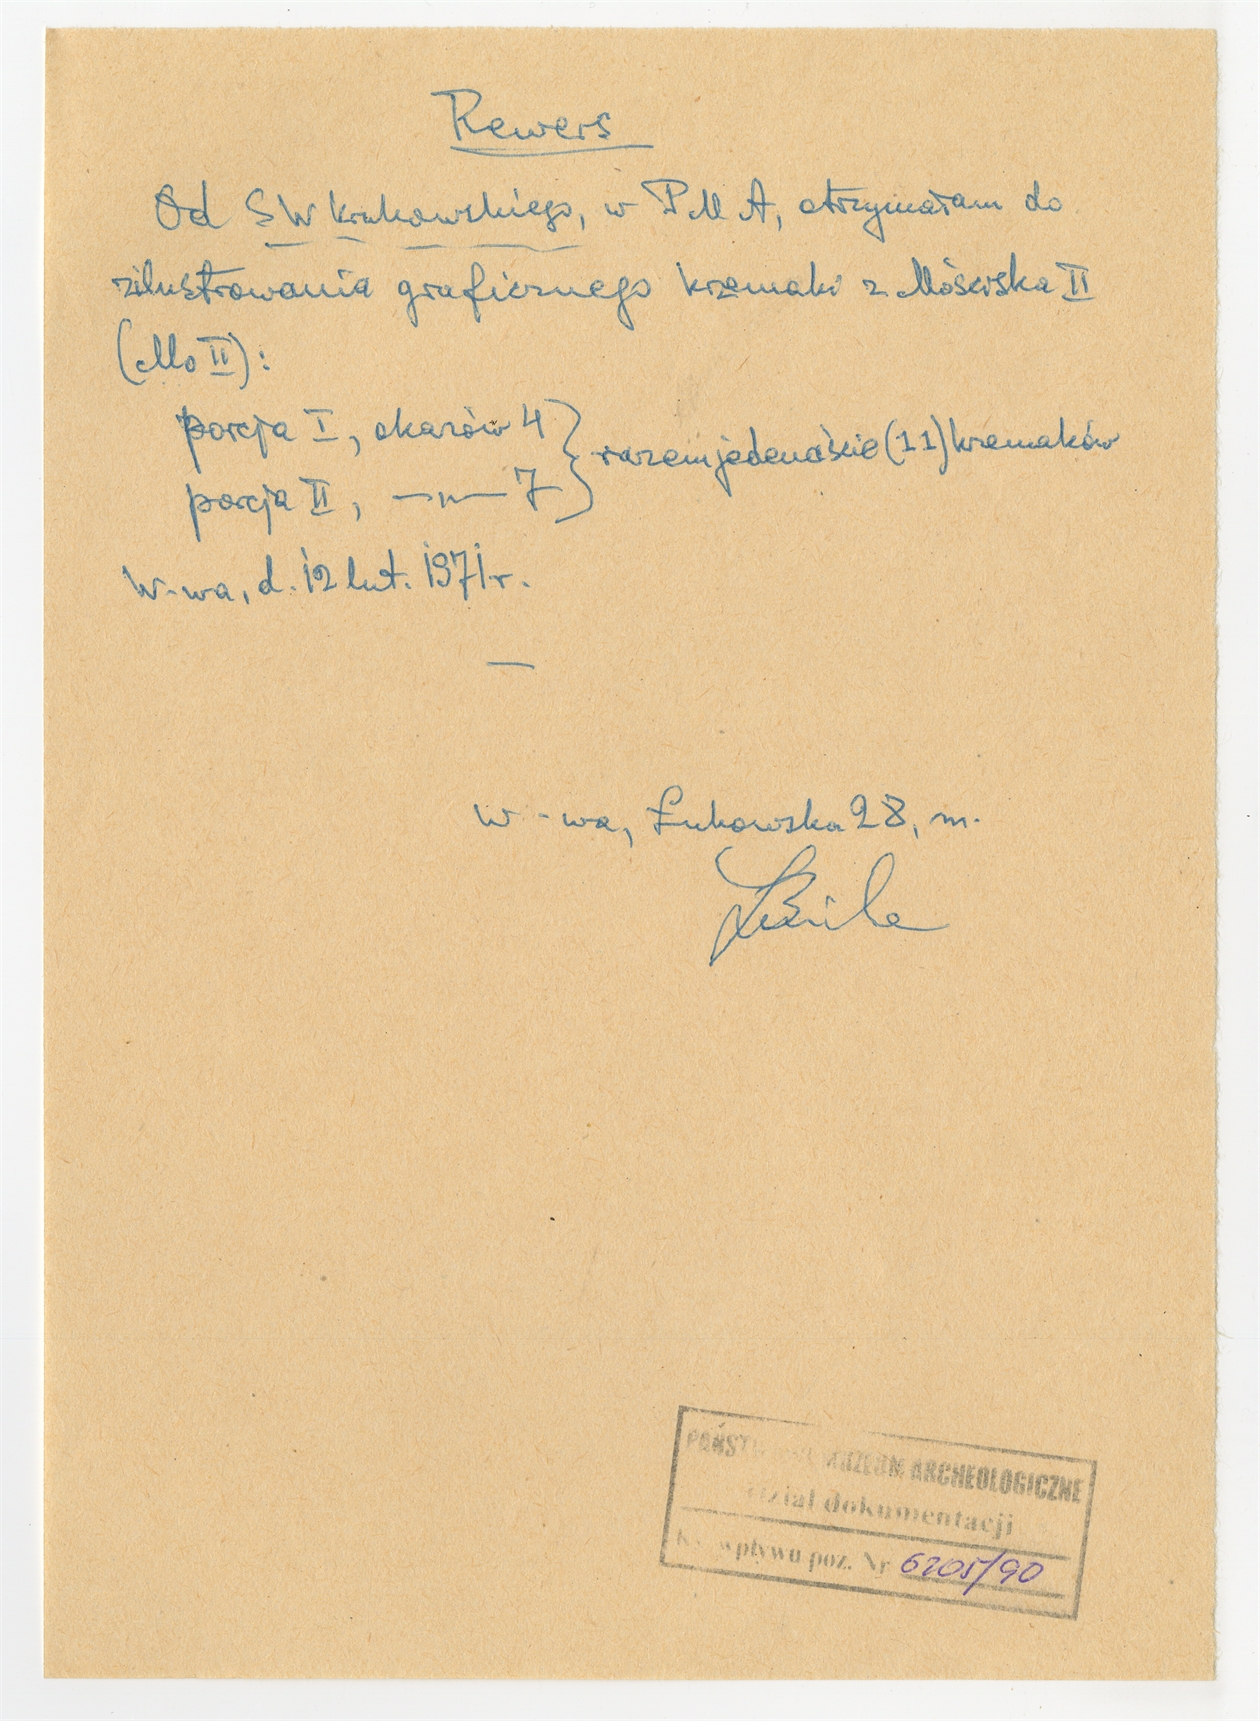 Rewers
Od SW Krukowskiego, w PMA, otrzymałam do
zilustrowania graficznego krzemaki z Mościska II
(Mo II):
porcja I, okazów 4
porcja II, —„— 7
} razem jedenaście (11) krzemaków
W-wa, d. 12 lut. 1971 r.
—
W-wa, Łukowska 28, m.
MUZEUM ARCHEOLOGICZNE
Dział dokumentacji
wpływu poz. Nr 6205/90